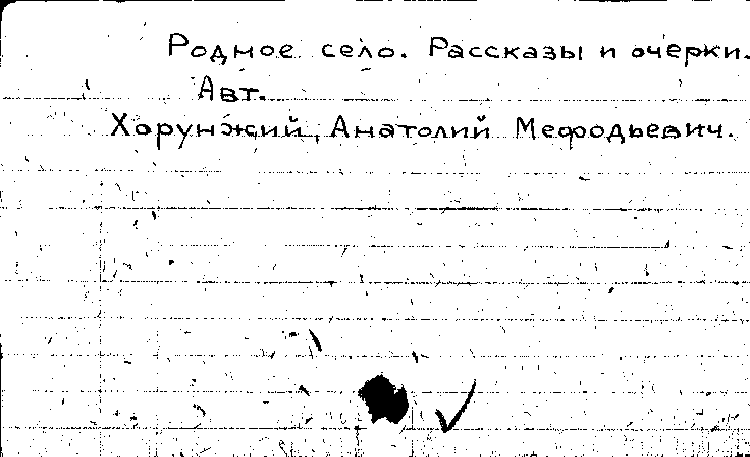 Родное село. Рассказы и очерки.
Авт.
Хорунжий, Анатолий Мефодьевич.